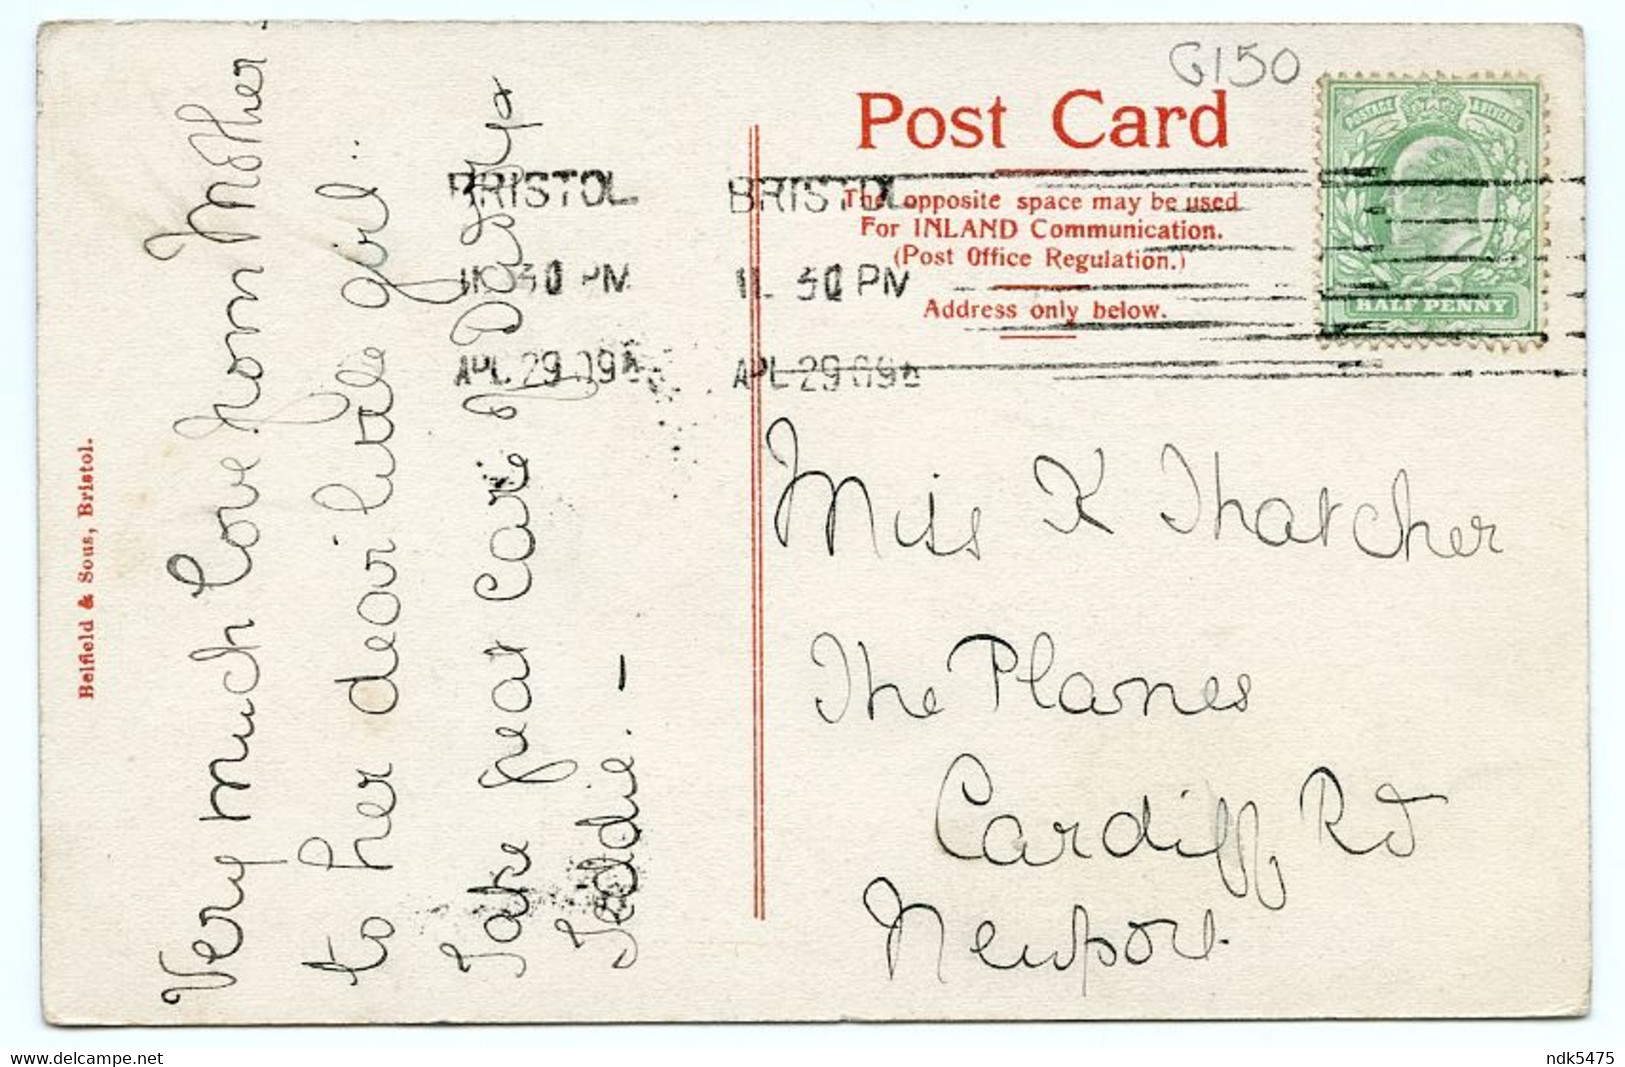 Very much love from Mother
to her dear little girl..
Take great care of Daddy &
Teddie. —
Belfield & Sons, Bristol.
G150
Post Card
The opposite space may be used
For INLAND Communication.
(Post Office Regulation.)
Address only below.
POSTAGE & REVENUE
HALF PENNY
BRISTOL
11.30 PM
APL 29 09
BRISTOL
11.30 PM
APL 29 09
Miss K Thatcher
The Planes
Cardiff Rd
Newport.
www.delcampe.net
ndk5475